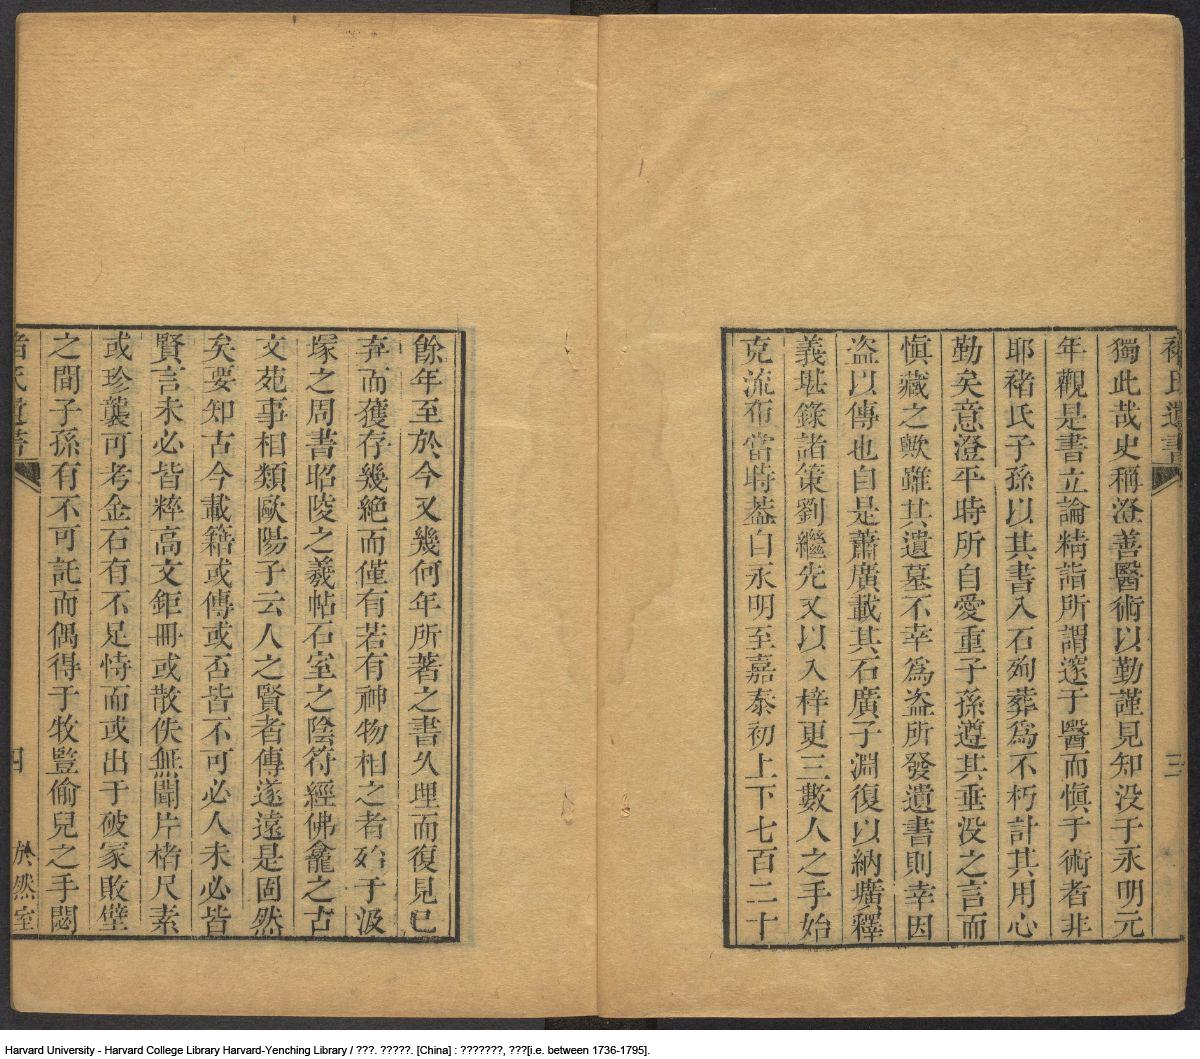 褚氏遺書
三
獨此哉史稱澄善醫術以勤謹見知没于永明元
年觀是書立論精詣所謂邃于醫而愼于術者非
耶褚氏子孫以其書入石殉葬爲不朽計其用心
勤矣意澄平時所自愛重子孫遵其垂没之言而
愼藏之歟雖其遺墓不幸爲盗所發遺書則幸因
盗以傳也自是蕭廣載其石廣子淵復以納壙釋
義堪錄諸策劉繼先又以入梓更三數人之手始
克流布當時葢自永明至嘉泰初上下七百二十
餘年至於今又幾何年所著之書久埋而復見已
弃而獲存幾絶而僅有若有神物相之者殆于汲
塚之周書昭陵之羲帖石室之陰符經佛龕之古
文苑事相類歐陽子云人之賢者傳遂遠是固然
矣要知古今載籍或傳或否皆不可必人未必皆
賢言未必皆粹高文鉅冊或散佚無聞片楮尺素
或珍襲可考金石有不足恃而或出于破冢敗壁
之間子孫有不可託而偶得于牧豎偷兒之手閟
褚氏遺書
四
於然室
Harvard University - Harvard College Library Harvard-Yenching Library / ???. ?????. [China] : ???????, ???[i.e. between 1736-1795].